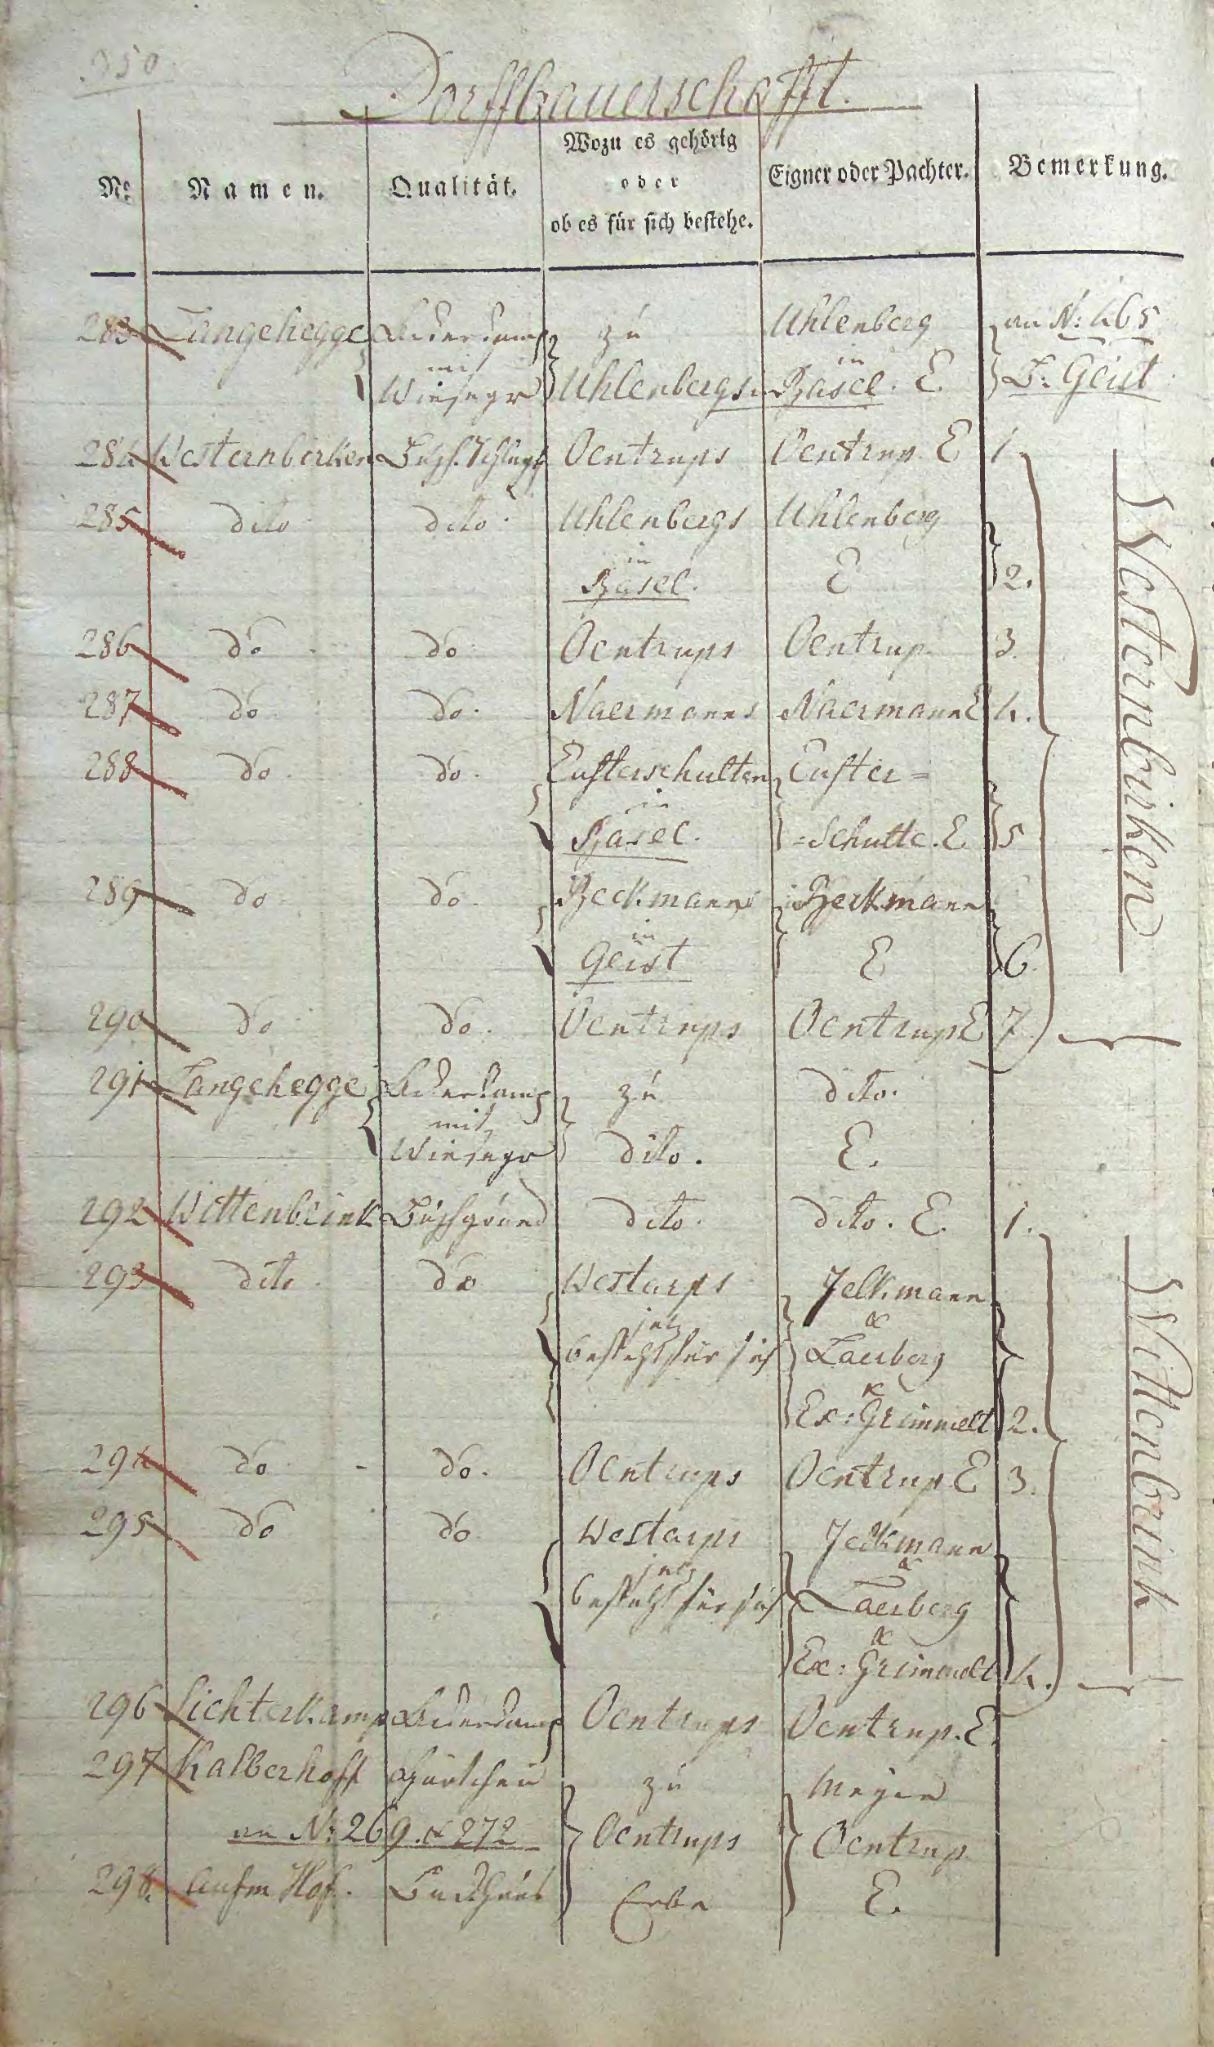 350.
Dorffbauerschafft.
No. Namen. Qualität. Wozu es gehörig oder ob es für sich bestehe. Eigner oder Pachter. Bemerkung.
283 Langehegge Ackerkamp zu Uhlenberg an N: 465
mit in
Wiesegr Uhlenbergs Basel. E. B: Geist
284 Westernbirken Oentrups Oentrup. E 1.
285 dito dito Uhlenbergs Uhlenberg
in
Basel. E 2.
286 do do Oentrups Oentrup. 3.
287 do do. Naermanns Naermann E 4.
288 do do. Eusterschulten Euster=
in
Basel. =Schulte. E 5
289 do do. Beckmanns Beckmann
in
Geist E 6.
290 do do. Oentrups Oentrup E 7
Westernbirken
291 Langehegge Ackerkamp zu dito.
mit
Wiesegr dito. E.
292 Wittenbrink Buschgrund dito. dito. E. 1.
293 dito do Westarps Jelkmann
jetz &
besteht für sich Laerberg
&
Ex: Grimmelt 2.
294 do - do. Oentrups Oentrup E 3.
295 do do Westarps Jelkmann
jetz &
besteht für sich Laerberg
&
Ex: Grimmelt 4.
Wittenbrink
296 Lichterkamp Ackerkamp Oentrups Oentrup. E.
297 Kalberhoff zu Meyer
an N: 269. & 272 Oentrups Oentrup
298. aufm Hof. Backhaus Erbe E.